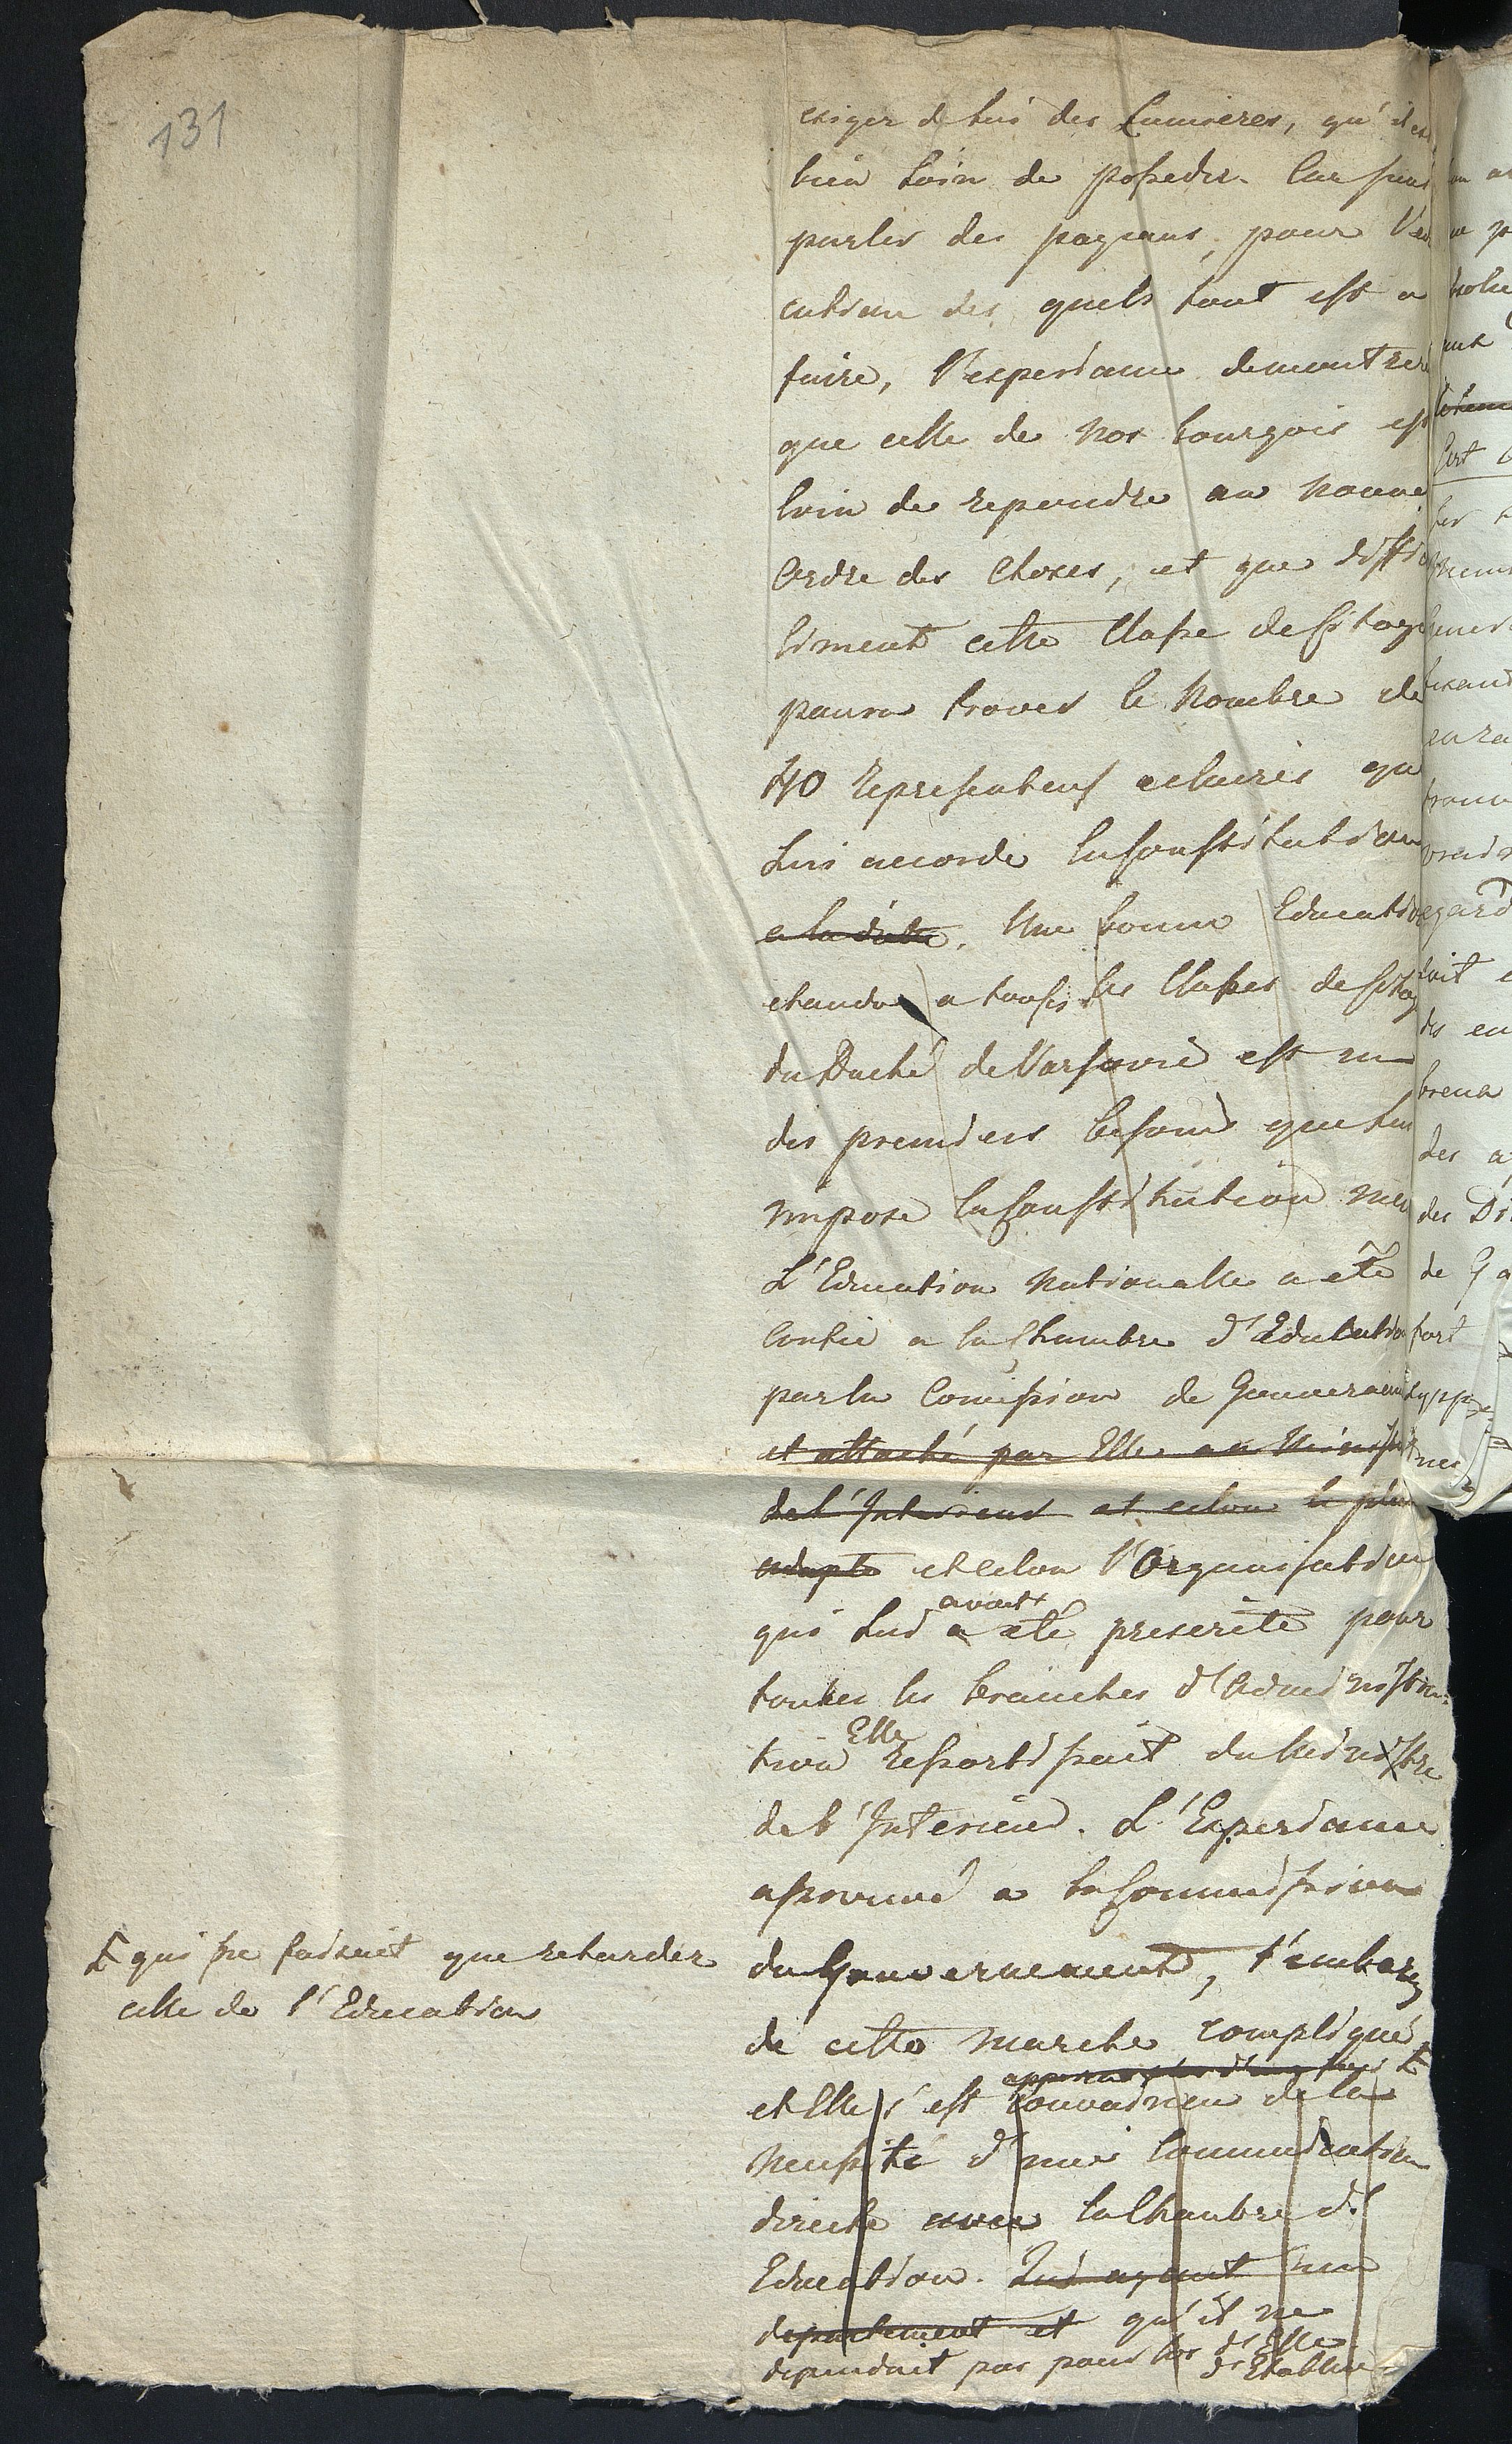 131
exiger de lui des Lumieres, qu'il est
bien loin de posseder. Car sans
parler des paysans, pour l'edu
cation des quels tout est a
faire, l'experiance demontre
que celle de nos bourgois est
loin de repondre au nouve
Ordre des choses, et que diffi
liment cette Classe de Citoye
poura trover le Nombre de
40 Representens eclairés que
Lui accorde la Constitution
Une bonne Educatio
etandue a touts les Classes de Citoy
du Duché de Varsovie est un
des premiers besoins que lui
impose la Constitution
L'Education Nationalle a eté
Confié a la Chambre d'Education
par la Comission de Gouvernem
et attaché par Elle au Ministre
de l'Interieur et celon le plan
adapté et celon l'Organisation
qui Lui a avait eté prescrite pour
toutes les branches d'Administra=
tion Elle ressortissait du Ministre
de l'Interieur. L'Experiance
a prouvé a la Commission
du Gouvernement, l'embaras
de cette marche compliqué
qui ne faisait que retarder
celle de l'Education
et Elle s'est convaincu de la
necessité d'une Communication
directe avec la Chambre d'
Education. Lui ayant
departement et qu'il ne
dependait pas pour lors d'Elle
d'Etablire